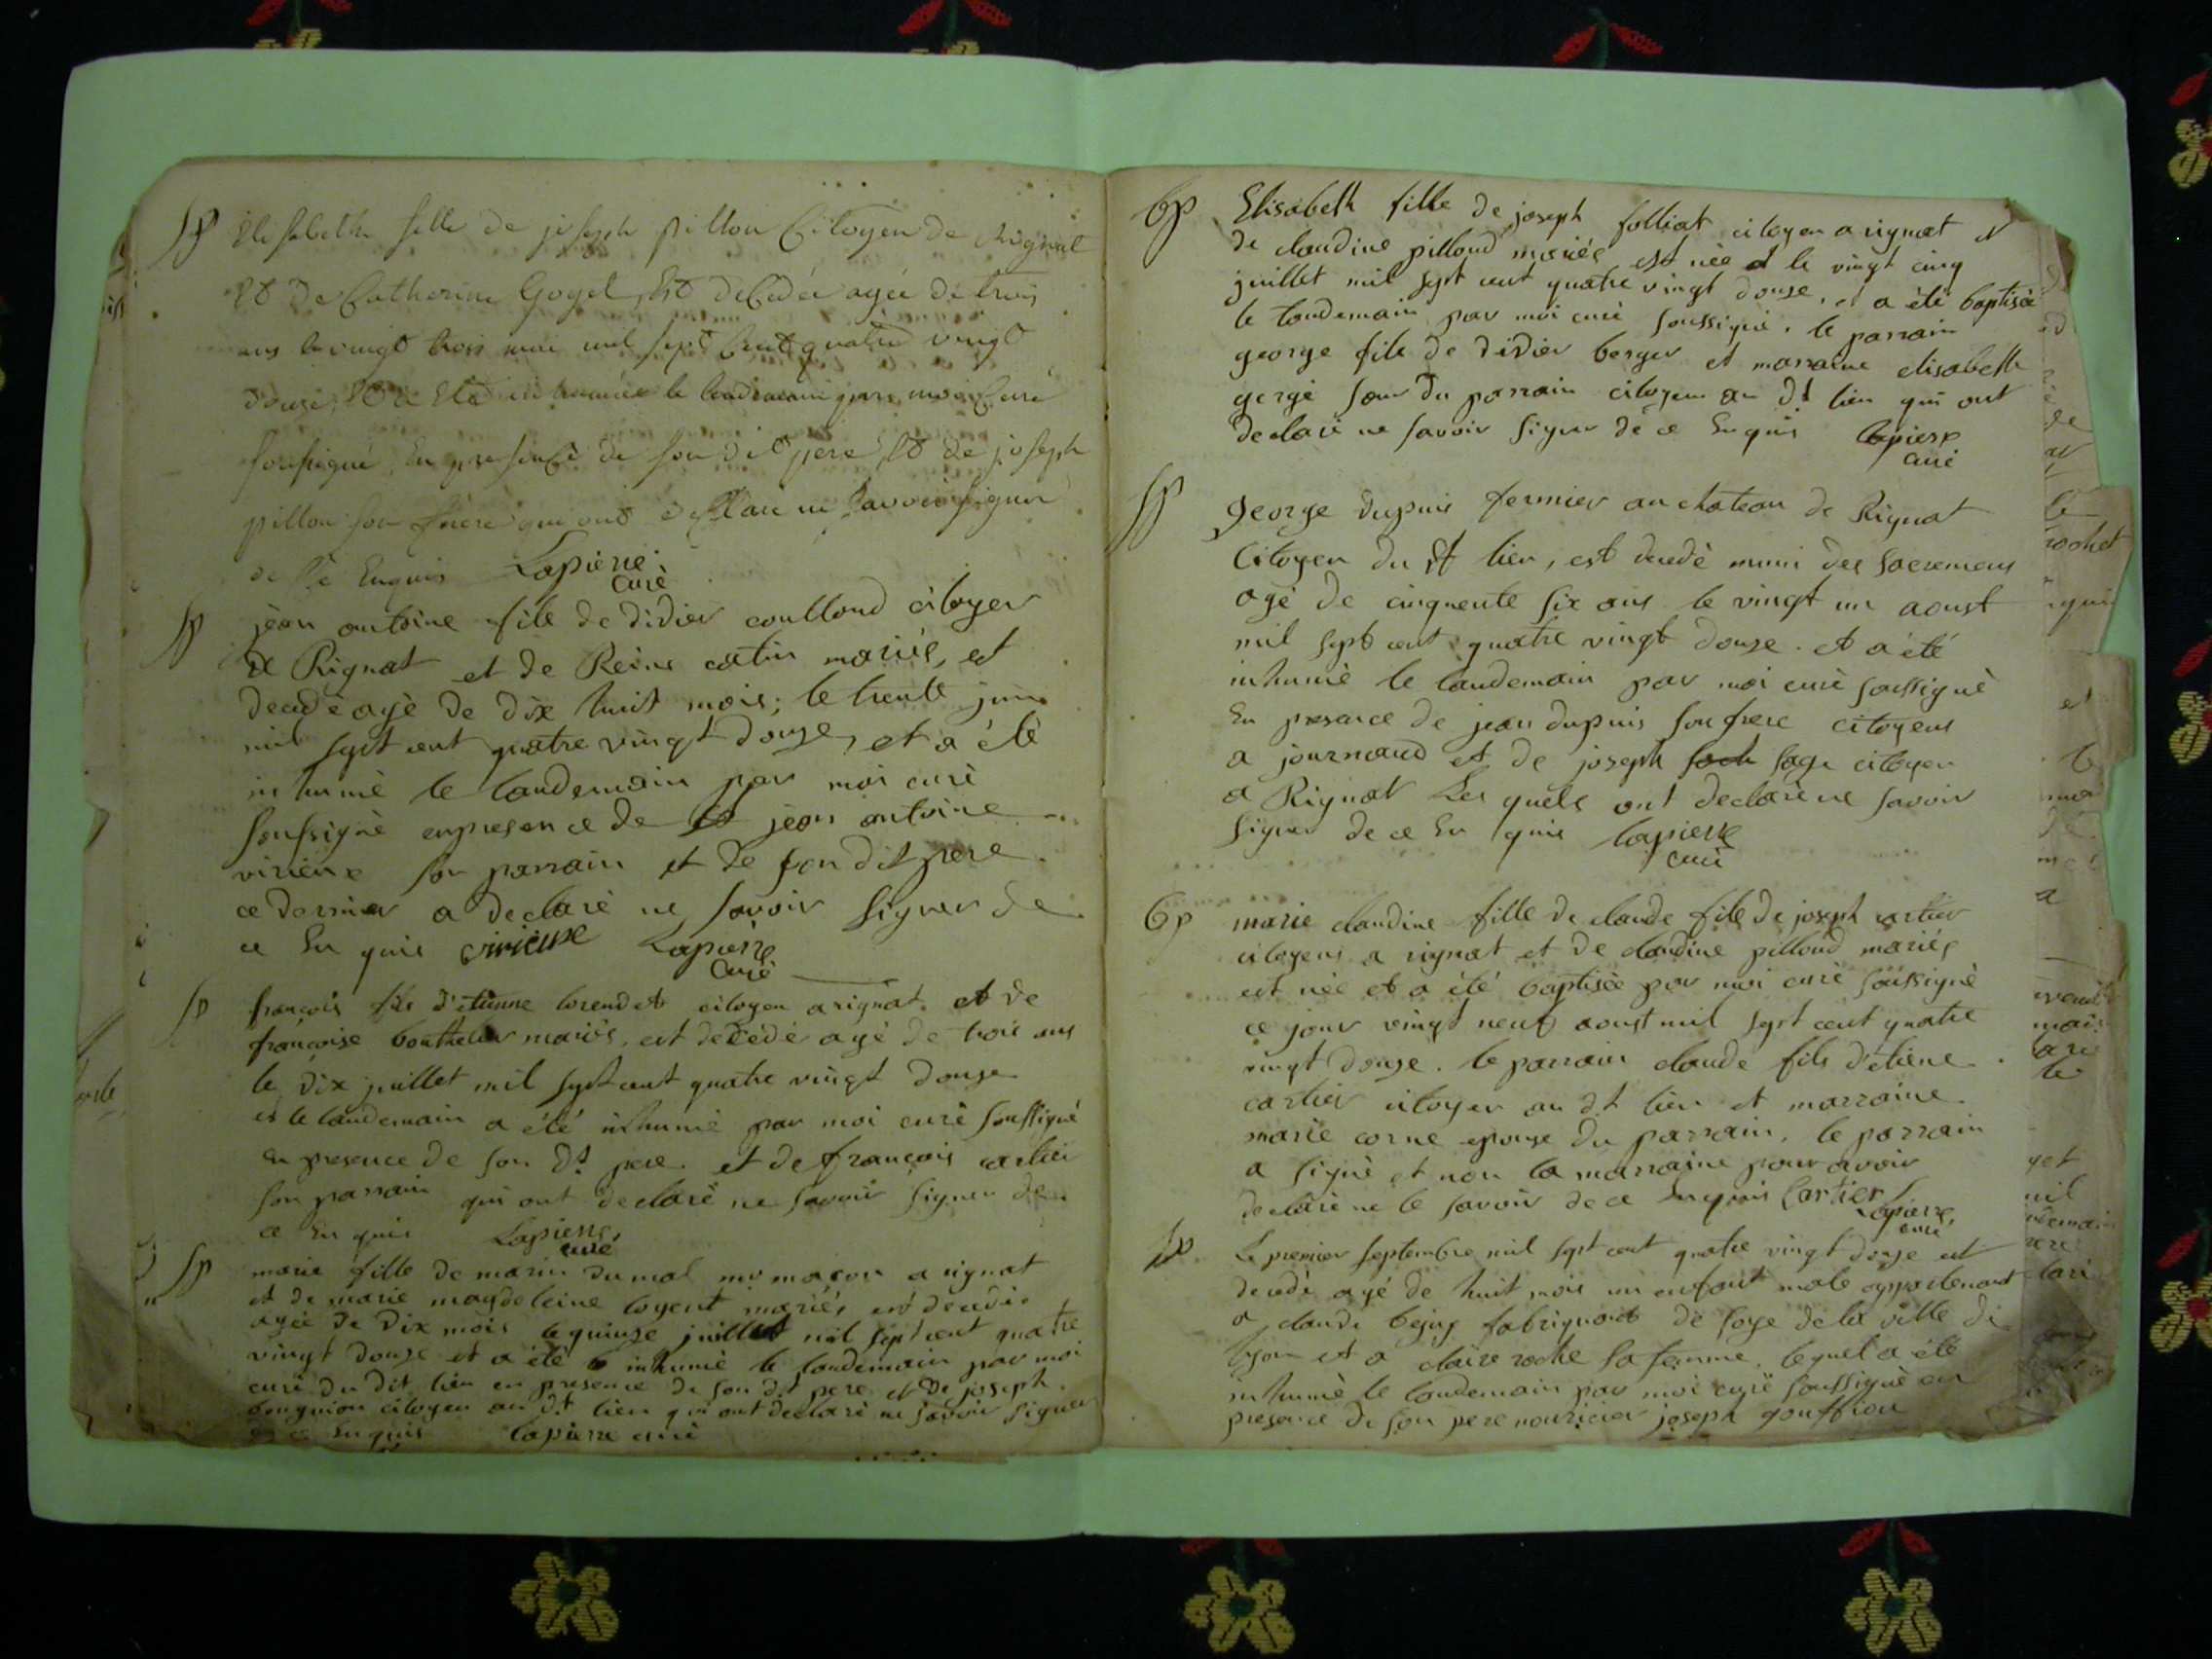 Sp Elisabethe fille de joseph pillon Citoyen de Rignat
Et De Catherine Gogel Est decedée agée de trois
ans le vingt trois mai mil sept Cent quatre vingt
douze, Et a Eté inhumée le lendemain par moi Curé
soussigné, En presence de son dit pere Et de joseph
pillon son frere qui ont declaré ne savoir signer
de Ce Enquis Lapierre
Curé
Sp jean antoine fils de didier coulloud citoyen
de Rignat et de Reine catin mariés, est
decedé agé de dix huit mois; le trente juin
mil sept cent quatre vingt douze, et a été
inhumé le landemain par moi curé
soussigné en presence de jean antoine
virieux son parrain et de son dit pere
ce dernier a declaré ne savoir signer de
ce Enquis virieuxe Lapierre
Curé
Sp françois fils d'etienne locendet citoyen a rignat. et de
françoise mariés, est decedé agé de trois ans
le dix juillet mil sept cent quatre vingt douze
et le landemain a été inhumé par moi curé soussigné
en presence de son dt pere et de françois cartier
son parrain qui ont declaré ne savoir signer de
ce Enquis Lapierre,
curé
Sp marie fille de marin dumal maçon a rignat
et de marie magdeleine mariés, est decedée
agée de dix mois le quinze juillet mil sept cent quatre
vingt douze et a été inhumé le landemain par moi
curé du dit lieu en presence de son dt pere et de joseph
bouguion citoyen au dt lieu qui ont declaré ne savoir signer
de ce Enquis lapierre curé
Bp Elisabeth fille de joseph folliat citoyen a rignat et
de claudine pilloud mariés est née le vingt cinq
juillet mil sept cent quatre vingt douze, et a été baptisée
le landemain par moi curé soussigné. le parrain
george fils de didier berger et marraine elisabeth
gergé sœur du parrain citoyen au dt lieu qui ont
declaré ne savoir signer de ce Enquis lapierre
curé
Sp george dupuis fermier au chateau de Rignat
Citoyen du dt lieu, est decedé muni des sacremens
agé de cinquente six ans le vingt un aoust
mil sept cent quatre vingt douze. et a été
inhumé le landemain par moi curé soussigné
En presence de jean dupuis son frere citoyens
a journand et de joseph sage citoyen
a Rignat Les quels ont declaré ne savoir
signer de ce Enquis lapierre
curé
Bp marie claudine fille de claude fils de joseph cartier
citoyens a rignat et de claudine pilloud mariés
est née et a été baptisée par moi curé soussigné
ce jour vingt neuf aoust mil sept cent quatre
vingt douze. le parrain claude fils d'etiene
cartier citoyen au dt lieu et marraine
marie corne epouse du parrain. le parrain
a signé et non la marraine pour avoir
declaré ne le savoir de ce Enquis Cartier Lapierre,
curé
Sp Le premier septembre mil sept cent quatre vingt douze est
decedé agé de huit mois un enfant male appartenant
a claude bejuy fabriquant de soye de la ville de
lyon et a claire roche sa femme. lequel a été
inhumé le landemain par moi curé soussigné en
presence de son pere nouricier joseph gouffion